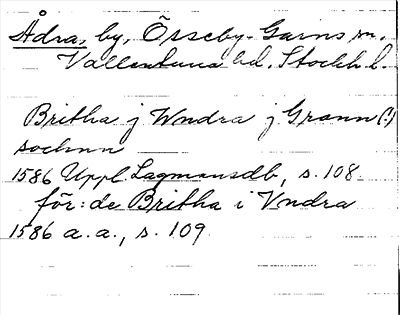 Ådra, by, Össeby-Garns sn.
Vallentuna hd. Stockh. l.
Britha j Wndra j Grann (!)
sochnn
1586 Uppl. Lagmansdb, s. 108.
för: de Britha i Vndra
1586 a.a., s. 109